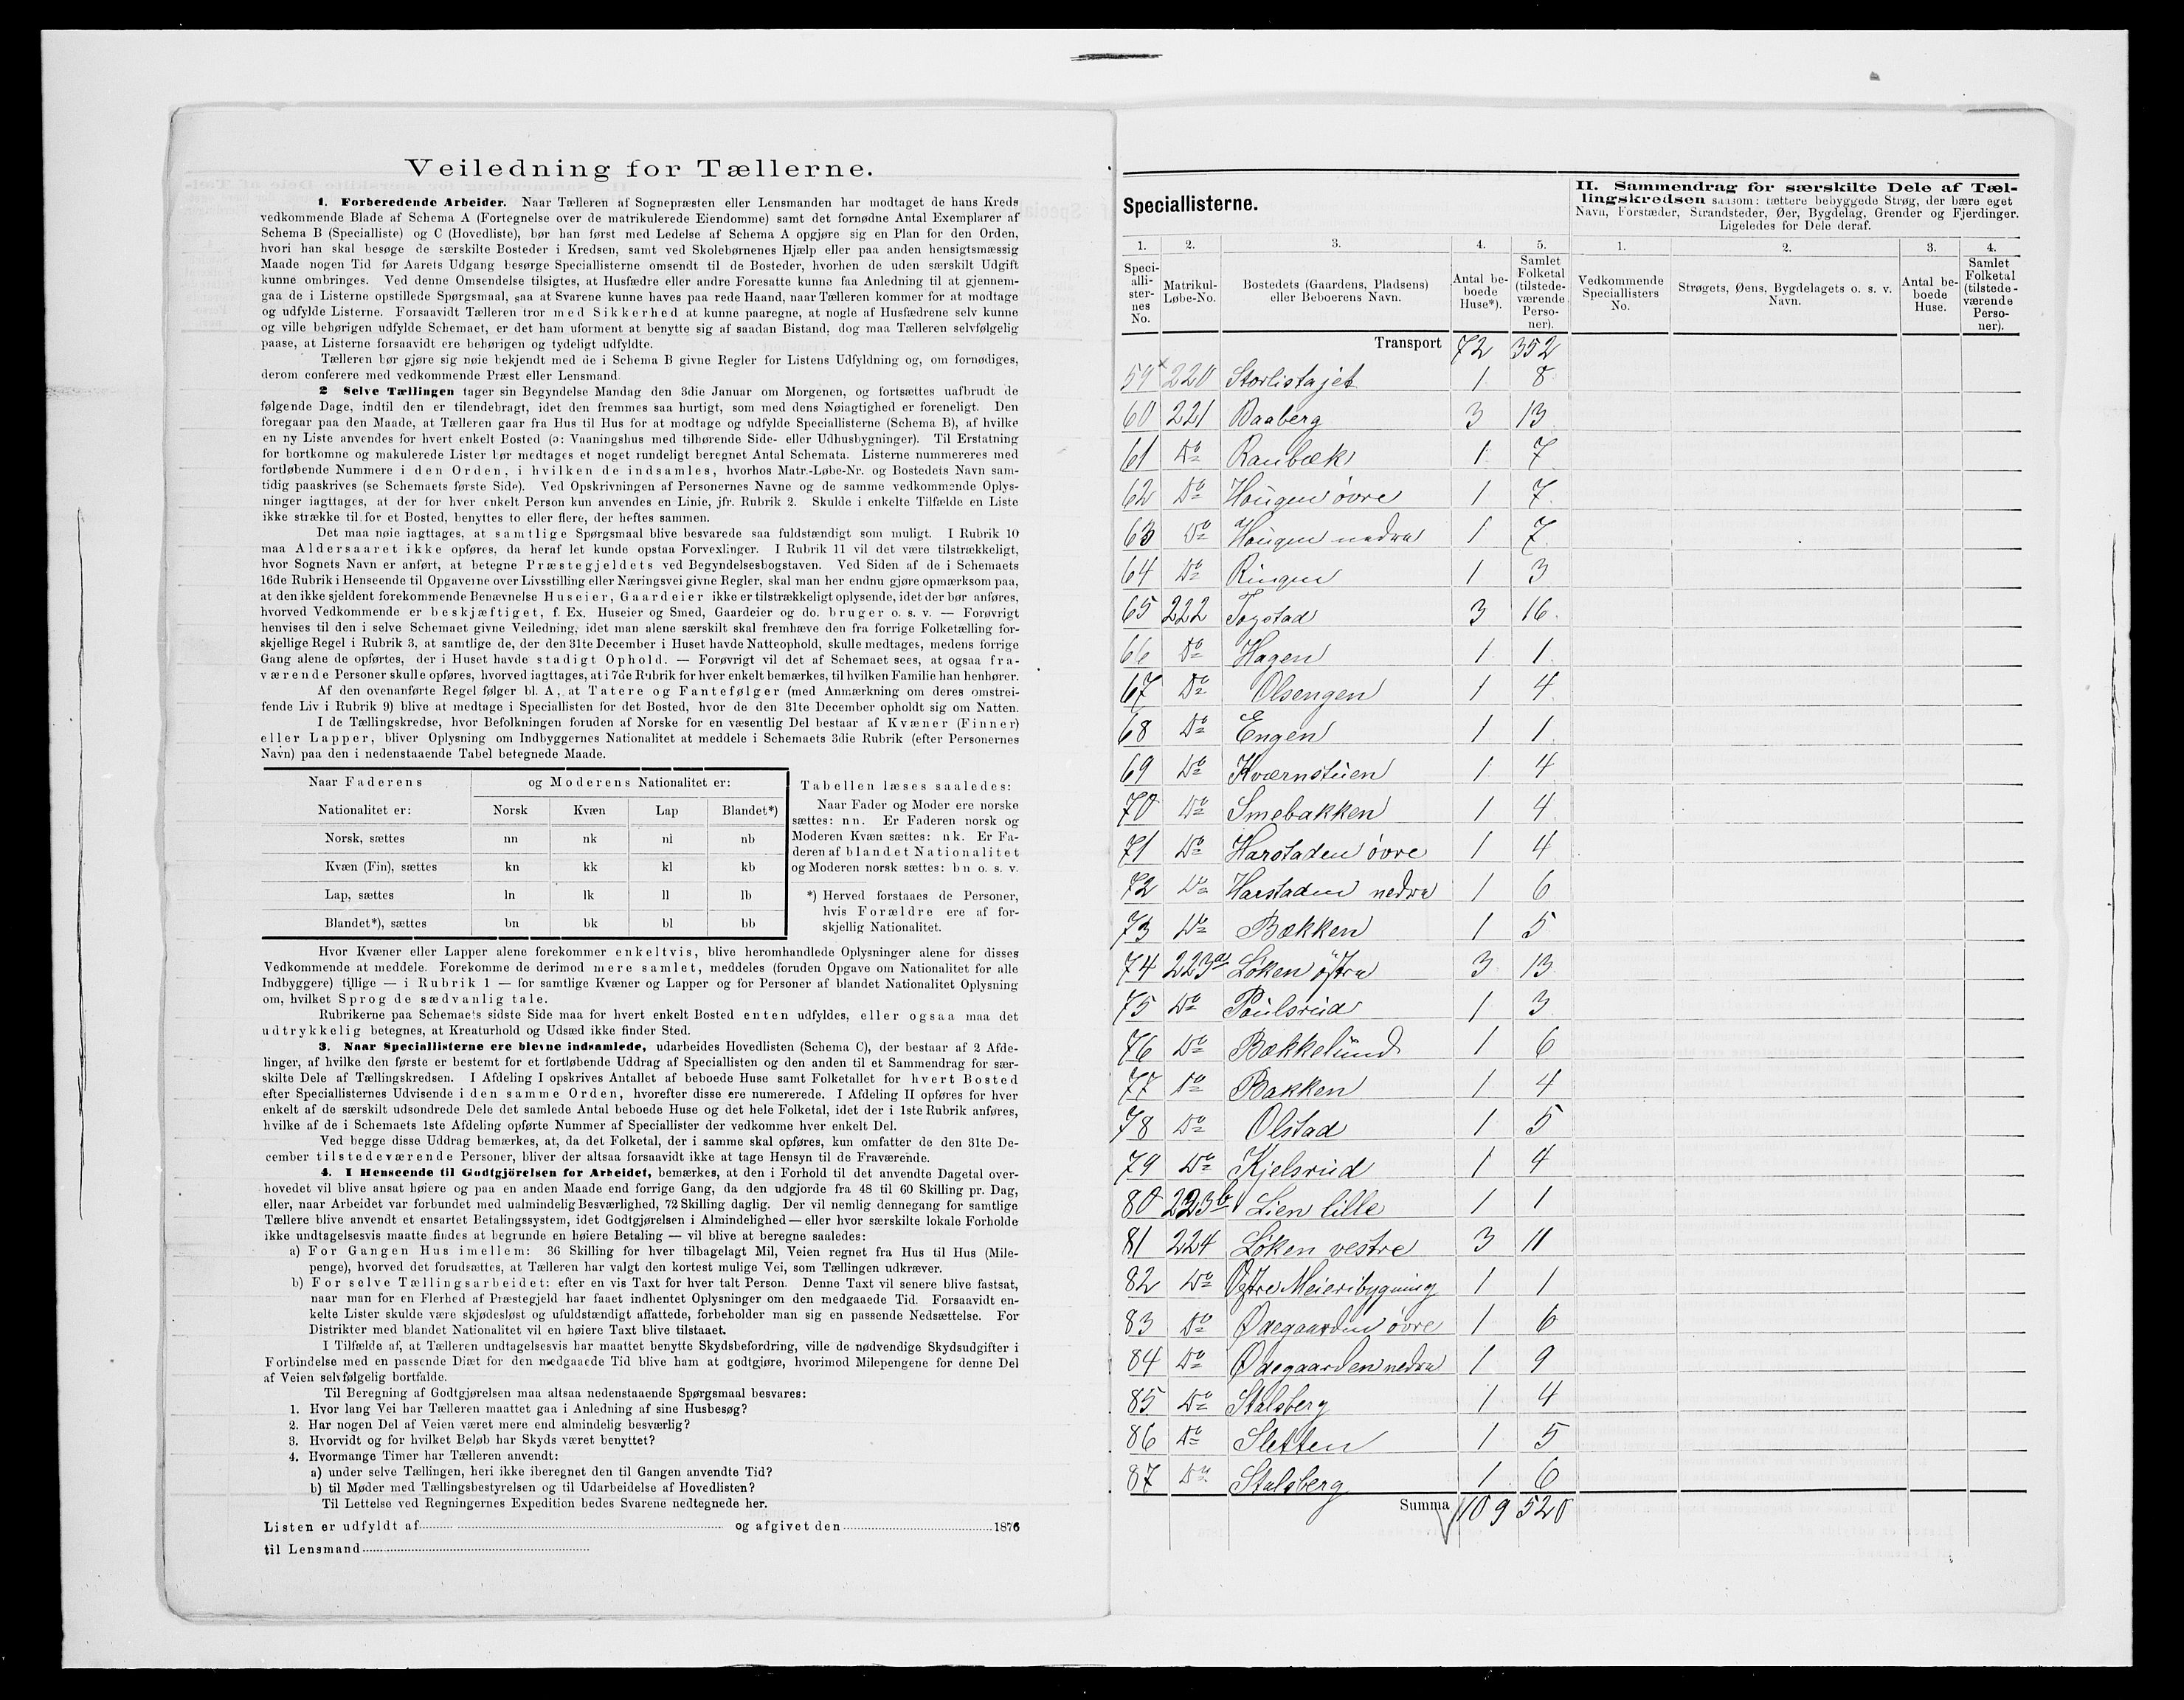 Veiledning for Tællerne.
1. Forberedende Arbeider. Naar Tælleren af Sognepræsten eller Lensmanden har modtaget de hans Kreds
vedkommende Blade af Schema A (Fortegnelse over de matrikulerede Eiendomme) samt det fornødne Antal Exemplarer af
Schema B (Specialliste) og C (Hovedliste), bør han først med Ledelse af Schema A opgjøre sig en Plan for den Orden,
hvori han skal besøge de særskilte Bosteder i Kredsen, samt ved Skolebørnenes Hjælp eller paa anden hensigtsmæssig
Maade nogen Tid før Aarets Udgang besørge Speciallisterne omsendt til de Bosteder, hvorhen de uden særskilt Udgift
kunne ombringes. Ved denne Omsendelse tilsigtes, at Husfædre eller andre Foresatte kunne faa Anledning til at gjennem-
gaa de i Listerne opstillede Spørgsmaal, saa at Svarene kunne haves paa rede Haand, naar Tælleren kommer for at modtage
og udfylde Listerne. Forsaavidt Tælleren tror med Sikkerhed at kunne paaregne, at nogle af Husfædrene selv kunne
og ville behørigen udfylde Schemaet, er det ham uforment at benytte sig af saadan Bistand, dog maa Tælleren selvfølgelig
paase, at Listerne forsaavidt ere behørigen og tydeligt udfyldte.
Tælleren bør gjøre sig nøie bekjendt med de i Schema B givne Regler for Listens Udfyldning og, om fornødiges,
derom conferere med vedkommende Præst eller Lensmand.
2 Selve Tællingen tager sin Begyndelse Mandag den 3die Januar om Morgenen, og fortsættes uafbrudt de
følgende Dage, indtil den er tilendebragt, idet den fremmes saa hurtigt, som med dens Nøiagtighed er foreneligt. Den
foregaar paa den Maade, at Tælleren gaar fra Hus til Hus for at modtage og udfylde Speciallisterne (Schema B), af hvilke
en ny Liste anvendes for hvert enkelt Bosted (ɔ: Vaaningshus med tilhørende Side- eller Udhusbygninger). Til Erstatning
for bortkomne og makulerede Lister bør medtages et noget rundeligt beregnet Antal Schemata. Listerne nummereres med
fortløbende Nummere i den Orden, i hvilken de indsamles, hvorhos Matr.-Løbe-Nr. og Bostedets Navn sam-
tidig paaskrives (se Schemaets første Side). Ved Opskrivningen af Personernes Navne og de samme vedkommende Oplys-
ninger iagttages, at der for hver enkelt Person kun anvendes en Linie, jfr. Rubrik 2. Skulde i enkelte Tilfælde en Liste
ikke strække til for et Bosted, benyttes to eller flere, der heftes sammen.
Det maa nøie iagttages, at samtlige Spørgsmaal blive besvarede saa fuldstændigt som muligt. I Rubrik 10
maa Aldersaaret ikke opføres, da heraf let kunde opstaa Forvexlinger. I Rubrik 11 vil det være tilstrækkeligt,
hvor Sognets Navn er anført, at betegne Præstegjeldets ved Begyndelsesbogstaven. Ved Siden af de i Schemaets
16de Rubrik i Henseende til Opgaverne over Livsstilling eller Næringsvei givne Regler, skal man her endnu gjøre opmærksom paa,
at den ikke sjeldent forekommende Benævnelse Huseier, Gaardeier ikke er tilstrækkeligt oplysende, idet der bør anføres,
hvorved Vedkommende er beskjæftiget, f. Ex. Huseier og Smed, Gaardeier og do. bruger o. s. v. — Forøvrigt
henvises til den i selve Schemaet givne Veiledning, idet man alene særskilt skal fremhæve den fra forrige Folketælling for-
skjellige Regel i Rubrik 3, at samtlige de, der den 31te December i Huset havde Natteophold, skulle medtages, medens forrige
Gang alene de opførtes, der i Huset havde stadigt Ophold. — Forøvrigt vil det af Schemaet sees, at ogsaa fra-
værende Personer skulle opføres, hvorved iagttages, at i 7de Rubrik for hver enkelt bemærkes, til hvilken Familie han henhører.
Af den ovenanførte Regel følger bl. A., at Tatere og Fantefølger (med Anmærkning om deres omstrei-
fende Liv i Rubrik 9) blive at medtage i Speciallisten for det Bosted, hvor de den 31te December opholdt sig om Natten.
I de Tællingskredse, hvor Befolkningen foruden af Norske for en væsentlig Del bestaar af Kvæner (Finner)
eller Lapper, bliver Oplysning om Indbyggernes Nationalitet at meddele i Schemaets 3die Rubrik (efter Personernes
Navn) paa den i nedenstaaende Tabel betegnede Maade.
Naar Faderens og Moderens Nationalitet er:
Nationalitet er: Norsk Kvæn Lap Blandet*)
Norsk, sættes nn nk nl nb
Kvæn (Fin), sættes kn kk kl kb
Lap, sættes ln lk ll lb
Blandet*), sættes bn bk bl bb
Tabellen læses saaledes:
Naar Fader og Moder ere norske
sættes: nn. Er Faderen norsk og
Moderen Kvæn sættes: nk. Er Fa-
deren af blandet Nationalitet
og Moderen norsk sættes: bn o. s. v.
*) Herved forstaaes de Personer,
hvis Forældre ere af for-
skjellig Nationalitet.
Hvor Kvæner eller Lapper alene forekommer enkeltvis, blive heromhandlede Oplysninger alene for disses
Vedkommende at meddele. Forekomme de derimod mere samlet, meddeles (foruden Opgave om Nationalitet for alle
Indbyggere) tillige — i Rubrik 1 — for samtlige Kvæner og Lapper og for Personer af blandet Nationalitet Oplysning
om, hvilket Sprog de sædvanlig tale.
Rubrikerne paa Schemaets sidste Side maa for hvert enkelt Bosted enten udfyldes, eller ogsaa maa det
udtrykkelig betegnes, at Kreaturhold og Udsæd ikke finder Sted.
3. Naar Speciallisterne ere blevne indsamlede, udarbeides Hovedlisten (Schema C), der bestaar af 2 Afde-
linger, af hvilke den første er bestemt for et fortløbende Uddrag af Speciallisten og den anden til et Sammendrag for sær-
skilte Dele af Tællingskredsen. I Afdeling I opskrives Antallet af beboede Huse samt Folketallet for hvert Bosted
efter Speciallisternes Udvisende i den samme Orden, hvorefter disse ere numererede. I Afdeling II opføres for hver
enkelt af de særskilt udsondrede Dele det samlede Antal beboede Huse og det hele Folketal, idet der i 1ste Rubrik anføres,
hvilke af de i Schemaets 1ste Afdeling opførte Nummer af Speciallister der vedkomme hver enkelt Del.
Ved begge disse Uddrag bemærkes, at, da det Folketal, der i samme skal opføres, kun omfatter de den 31te De-
cember tilstedeværende Personer, bliver der altsaa forsaavidt ikke at tage Hensyn til de Fraværende.
4. I Henseende til Godtgjörelsen for Arbeidet, bemærkes, at den i Forhold til det anvendte Dagetal over-
hovedet vil blive ansat høiere og paa en anden Maade end forrige Gang, da den udgjorde fra 48 til 60 Skilling pr. Dag,
eller, naar Arbeidet var forbundet med ualmindelig Besværlighed, 72 Skilling daglig. Der vil nemlig dennegang for samtlige
Tællere blive anvendt et ensartet Betalingssystem, idet Godtgjørelsen i Almindelighed — eller hvor særskilte lokale Forholde
ikke undtagelsesvis maatte findes at begrunde en høiere Betaling — vil blive at beregne saaledes:
a) For Gangen Hus imellem: 36 Skilling for hver tilbagelagt Mil, Veien regnet fra Hus til Hus (Mile-
penge), hvorved det forudsættes, at Tælleren har valgt den kortest mulige Vei, som Tællingen udkræver.
b) For selve Tællingsarbeidet: efter en vis Taxt for hver talt Person. Denne Taxt vil senere blive fastsat,
naar man for en Flerhed af Præstegjeld har faaet indhentet Oplysninger om den medgaaede Tid. Forsaavidt en-
kelte Lister skulde være skjødesløst og ufuldstændigt affattede, forbeholder man sig en passende Nedsættelse. For
Distrikter med blandet Nationalitet vil en høiere Taxt blive tilstaaet.
I Tilfælde af, at Tælleren undtagelsesvis har maattet benytte Skydsbefordring, ville de nødvendige Skydsudgifter i
Forbindelse med en passende Diæt for den medgaaede Tid blive ham at godtgjøre, hvorimod Milepengene for denne Del
af Veien selvfølgelig bortfalde.
Til Beregning af Godtgjørelsen maa altsaa nedenstaaende Spørgsmaal besvares:
1. Hvor lang Vei har Tælleren maattet gaa i Anledning af sine Husbesøg?
2. Har nogen Del af Veien været mere end almindelig besværlig?
3. Hvorvidt og for hvilket Beløb har Skyds været benyttet?
4. Hvormange Timer har Tælleren anvendt:
a) under selve Tællingen, heri ikke iberegnet den til Gangen anvendte Tid?
b) til Møder med Tællingsbestyrelsen og til Udarbeidelse af Hovedlisten?
Til Lettelse ved Regningernes Expedition bedes Svarene nedtegnede her.
Listen er udfyldt af og afgivet den 1876
til Lensmand
Speciallisterne.
II. Sammendrag for særskilte Dele af Tæl-
lingskredsen saasom: tættere bebyggede Strøg, der bære eget
Navn, Forstæder, Strandsteder, Øer, Bygdelag, Grender og Fjerdinger.
Ligeledes for Dele deraf.
1. 2. 3. 4. 5. 1. 2. 3. 4.
Speci-
alli-
ster-
nes
No.
Matrikul-
Løbe-No.
Bostedets (Gaardens, Pladsens)
eller Beboerens Navn.
Antal be-
boede
Huse*).
Samlet
Folketal
(tilstede-
værende
Perso-
ner).
Vedkommende
Speciallisters
No.
Strøgets, Øens, Bygdelagets o. s. v.
Navn.
Antal be-
boede
Huse.
Samlet
Folketal
(tilstede-
værende
Perso-
ner).
Transport 72 352
59 x 220 Storlistajet 1 8
60 221 Baaberg 3 13
61 Do Ranbæk 1 7
62 Do Hougen övre 1 7
63 Do Hougen nedre 1 7
64 Do Ringen 1 3
65 222 Togstad 3 16
66 Do Hagen 1 1
67 Do Olsengen 1 4
68 Do Engen 1 1
69 Do Kværnstuen 1 4
70 Do Smebakken 1 4
71 Do Harstaden övre 1 4
72 Do Harstaden nedre 1 6
73 Do Bækken 1 5
74 223a Løken östre 3 13
75 Do Poulsrud 1 3
76 Do Bækkelund 1 6
77 Do Bakken 1 4
78 Do Olstad 1 5
79 Do Kjelsrud 1 4
80 223b Lien lille 1 1
81 224 Løken vestre 3 11
82 Do Østre Meieribygning 1 1
83 Do Ødegaarden övre 1 6
84 Do Ødegaarden nedre 1 9
85 Do Stalsberg 1 4
86 Do Sletten 1 5
87 Do Stalsberg 1 6
Summa 109 520